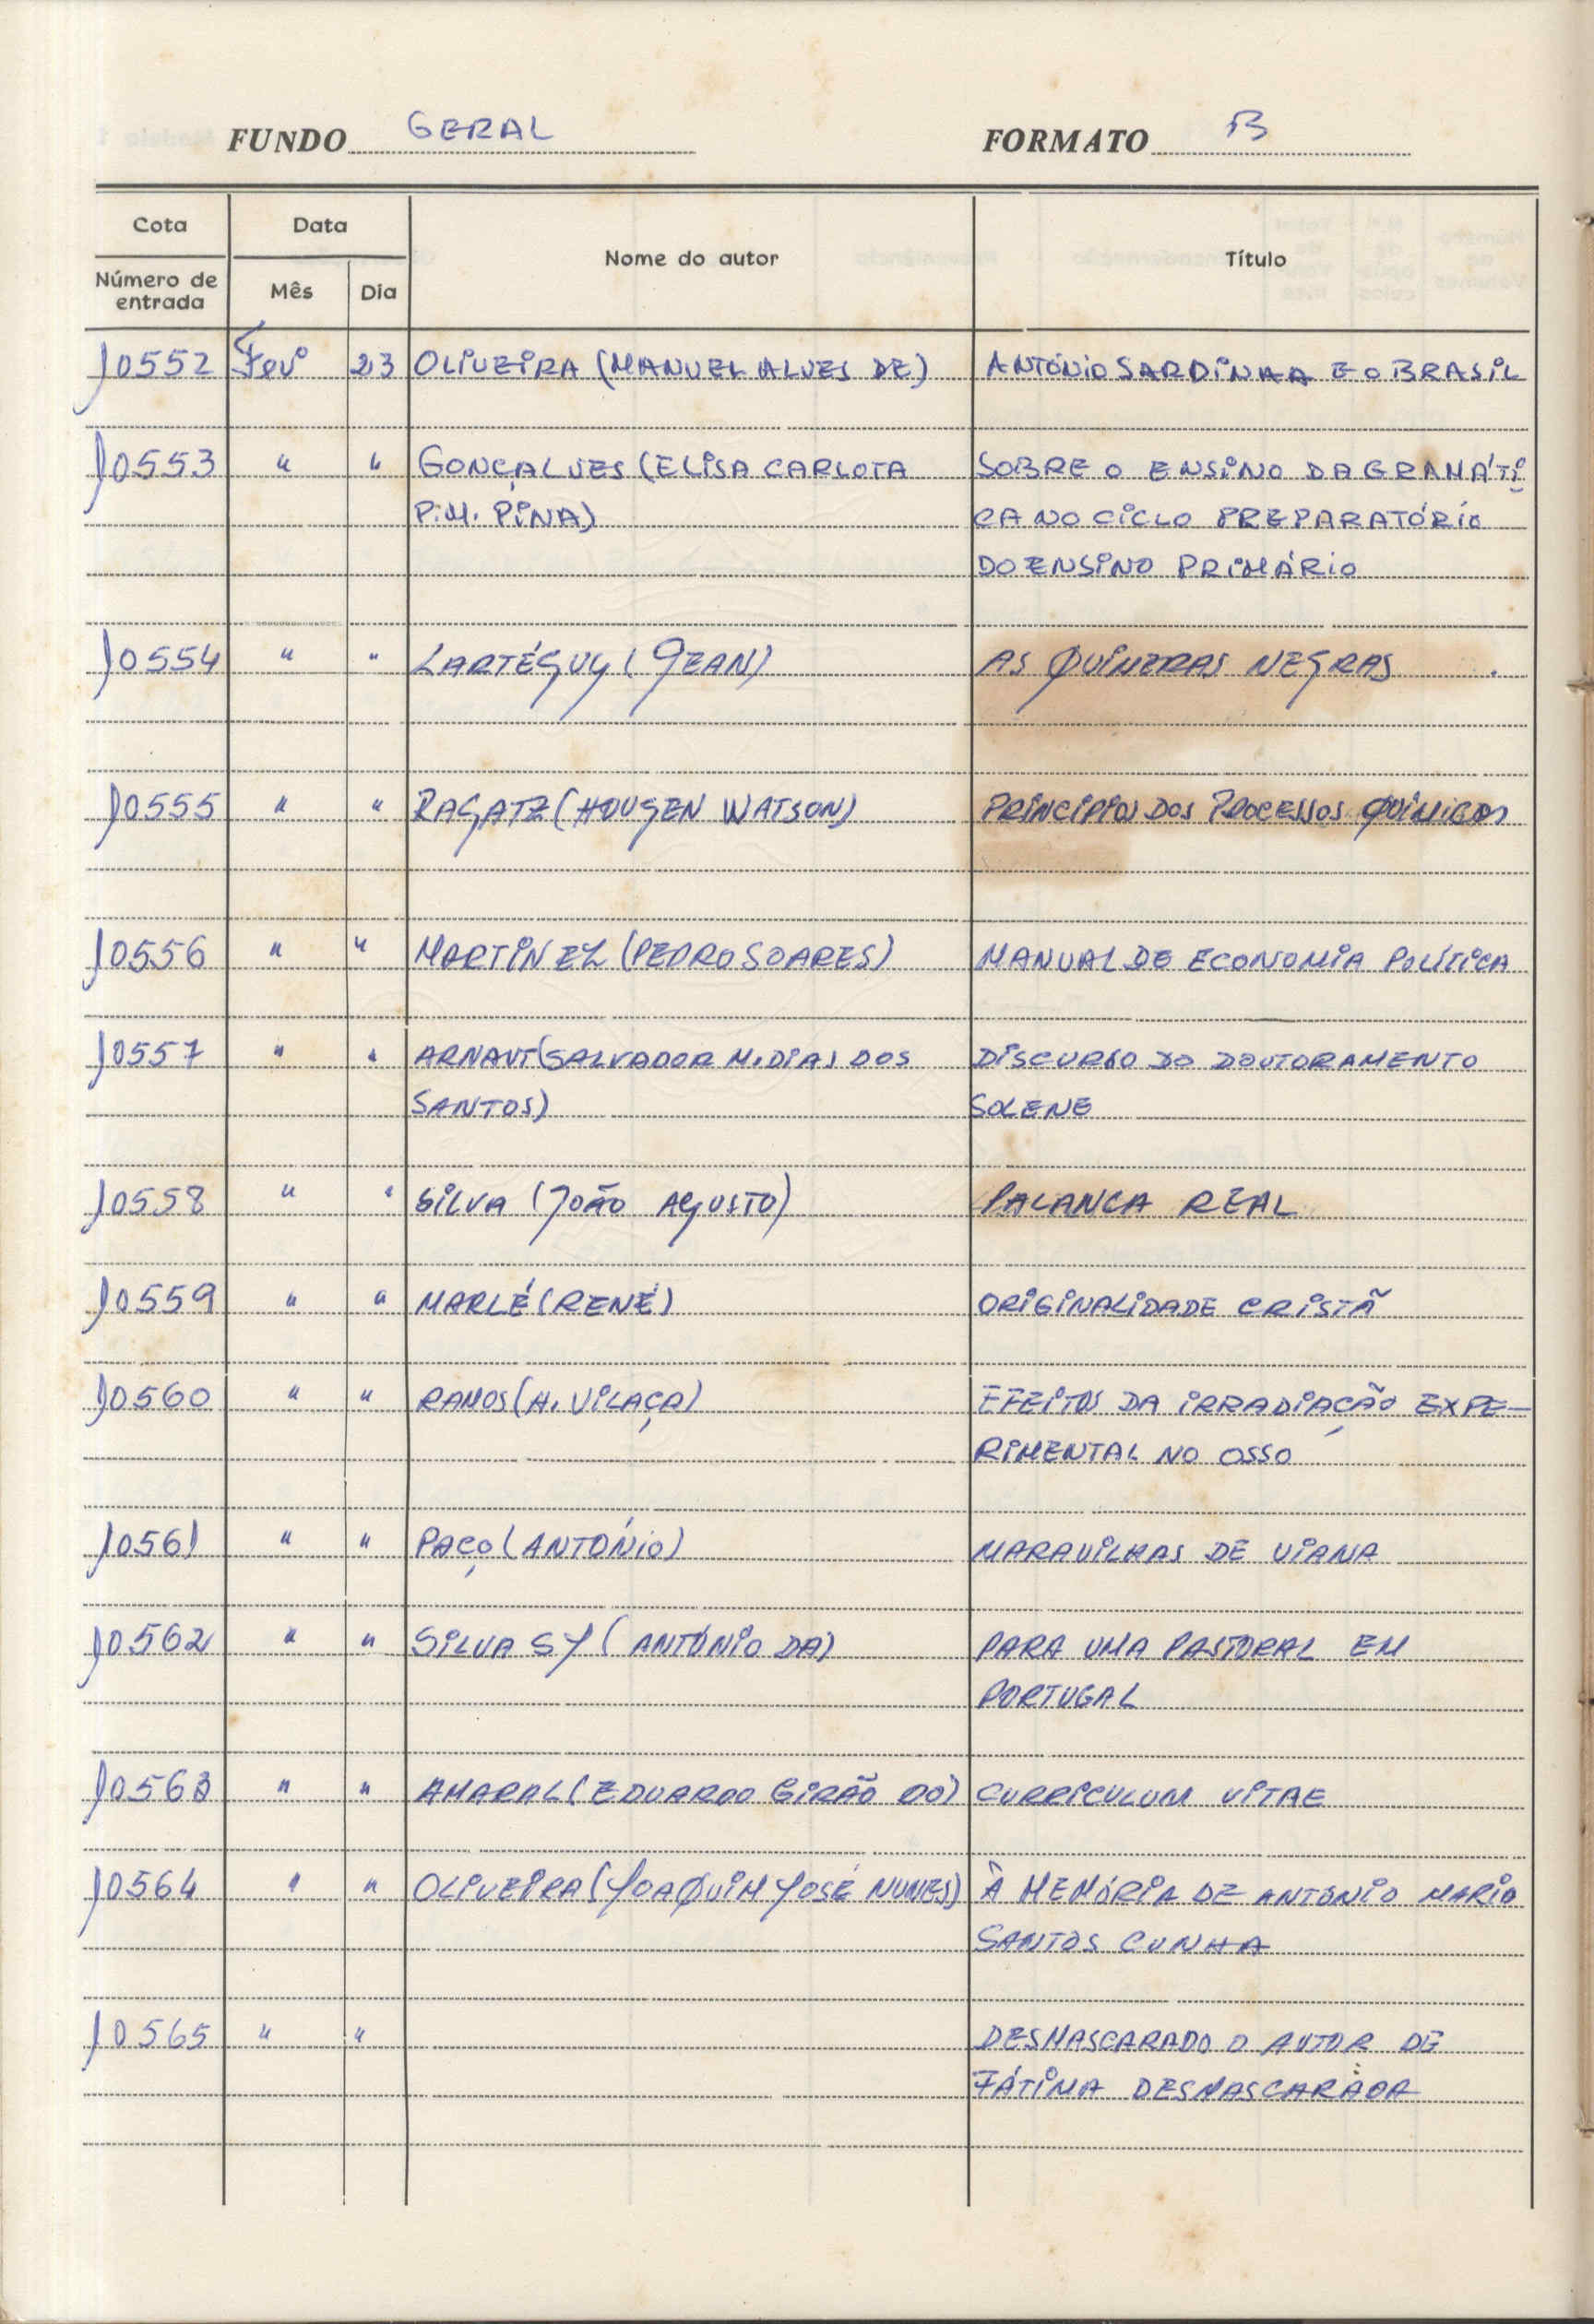 FUNDO GERAL FORMATO B
Cota Data Nome do autor Título
Número de entrada Mês Dia
10552 Fevº 23 OLIVEIRA (MANUEL ALVES DE) ANTÓNIO SARDINHA E O BRASIL
10553 " " GONÇALVES (ELISA CARLOTA SOBRE O ENSINO DA GRAMÁTI
P.M. PINA) CA NO CICLO PREPARATÓRIO
DO ENSINO PRIMÁRIO
10554 " " LARTÉGUY (JEAN) AS QUIMERAS NEGRAS
10555 " " RAGATZ (HOUGEN WATSON) PRINCÍPIOS DOS PROCESSOS QUÍMICOS
10556 " " MARTINEZ (PEDRO SOARES) MANUAL DE ECONOMIA POLÍTICA
10557 " " ARNAUT (SALVADOR M. DIAS DOS DISCURSO DO DOUTORAMENTO
SANTOS) SOLENE
10558 " " SILVA (JOÃO AGUSTO) PALANCA REAL
10559 " " MARLÉ (RENÉ) ORIGINALIDADE CRISTÃ
10560 " " RAMOS (H. VILAÇA) EFEITOS DA IRRADIAÇÃO EXPE-
RIMENTAL NO OSSO
10561 " " PAÇO (ANTÓNIO) MARAVILHAS DE VIANA
10562 " " SILVA SJ (ANTÓNIO DA) PARA UMA PASTORAL EM
PORTUGAL
10563 " " AMARAL (EDUARDO GIRÃO DO) CURRICULUM VITAE
10564 " " OLIVEIRA (JOAQUIM JOSÉ NUNES) À MEMÓRIA DE ANTÓNIO MARIO
SANTOS CUNHA
10565 " " DESMASCARADO O AUTOR DE
FÁTIMA DESMASCARADA